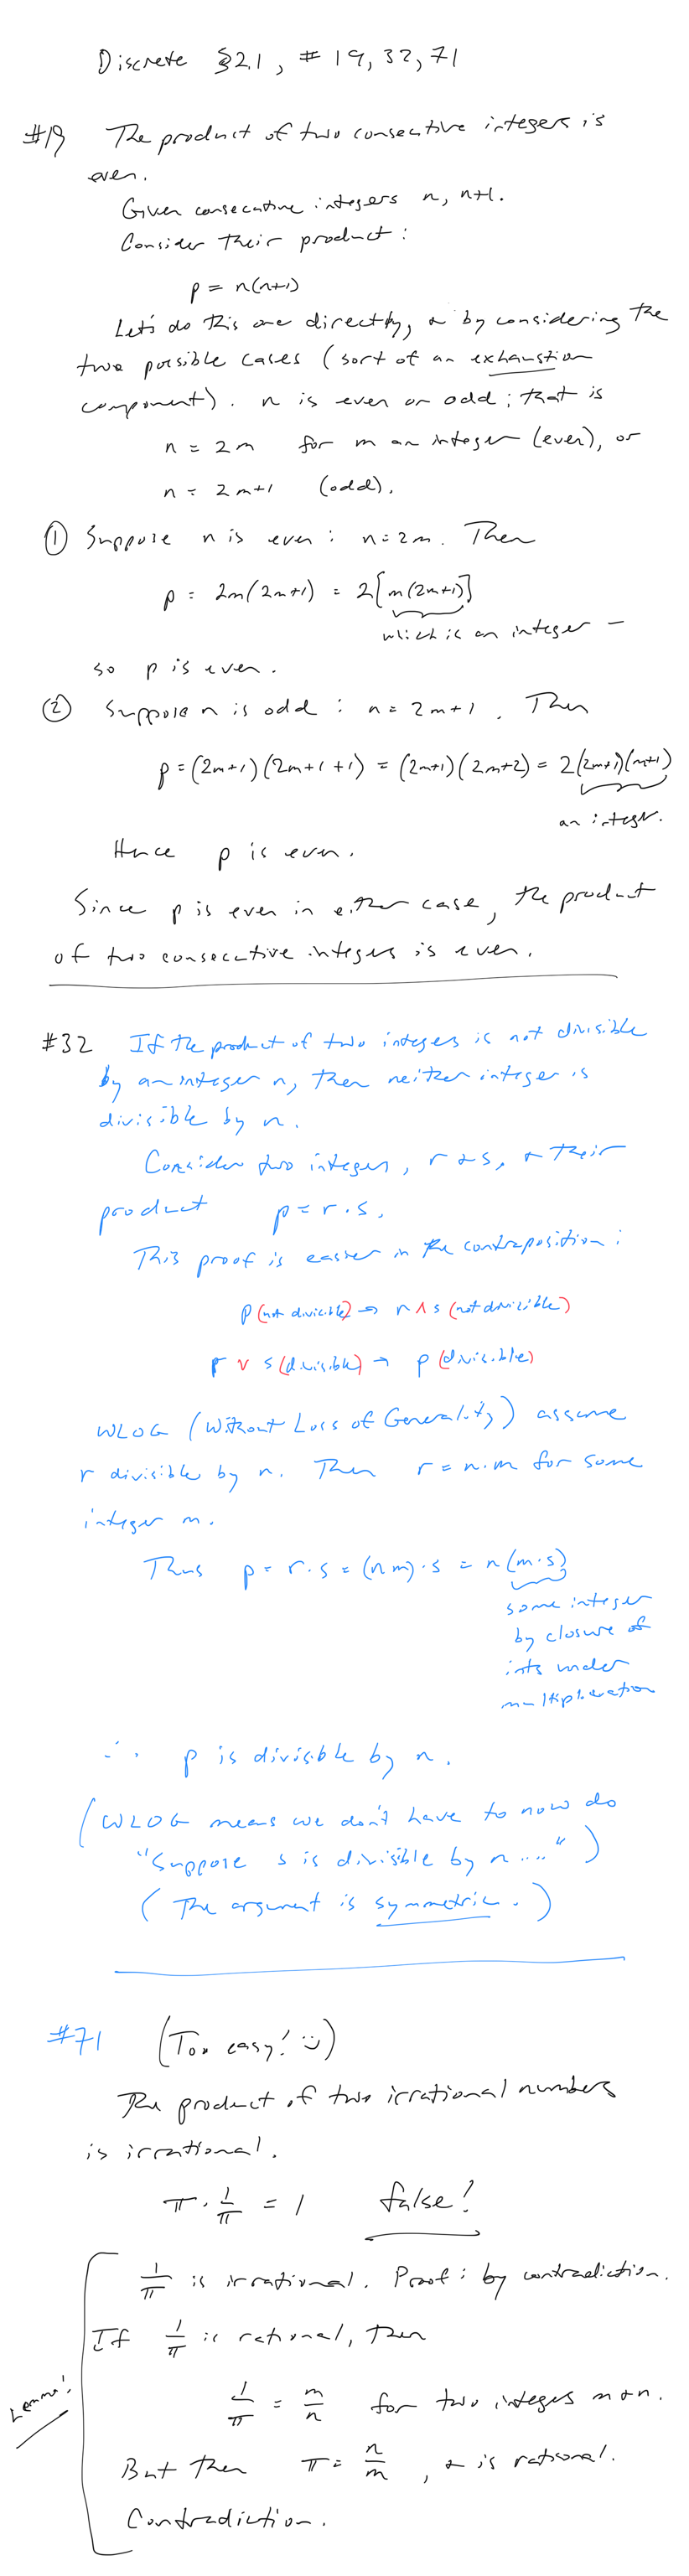 Discrete §2.1, # 19, 32, 71
#19 The product of two consecutive integers is
even.
Given consecutive integers n, n+1.
Consider their product:
p = n(n+1)
Let's do this one directly, & by considering the
two possible cases (sort of an exhaustion
component). n is even or odd; that is
n = 2m for m an integer (even), or
n = 2m+1 (odd).
① Suppose n is even: n=2m. Then
p = 2m(2m+1) = 2[m(2m+1)]
which is an integer –
so p is even.
② Suppose n is odd: n = 2m+1. Then
p = (2m+1)(2m+1+1) = (2m+1)(2m+2) = 2(2m+1)(m+1)
an integer.
Hence p is even.
Since p is even in either case, the product
of two consecutive integers is even.
#32 If the product of two integers is not divisible
by an integer n, then neither integer is
divisible by n.
Consider two integers, r & s, & their
product p = r·s.
This proof is easier in the contraposition:
p (not divisible) → r ∧ s (not divisible)
r ∨ s (divisible) → p (divisible)
WLOG (Without Loss of Generality) assume
r divisible by n. Then r = n·m for some
integer m.
Thus p = r·s = (nm)·s = n(m·s)
some integer
by closure of
ints under
multiplication
∴ p is divisible by n.
(WLOG means we don't have to now do
"Suppose s is divisible by n ....")
(The argument is symmetric.)
#71 (Too easy! :))
The product of two irrational numbers
is irrational.
π · 1/π = 1 false!
1/π is irrational. Proof: by contradiction.
If 1/π is rational, then
Lemma! 1/π = m/n for two integers m & n.
But then π = n/m, & is rational.
Contradiction.